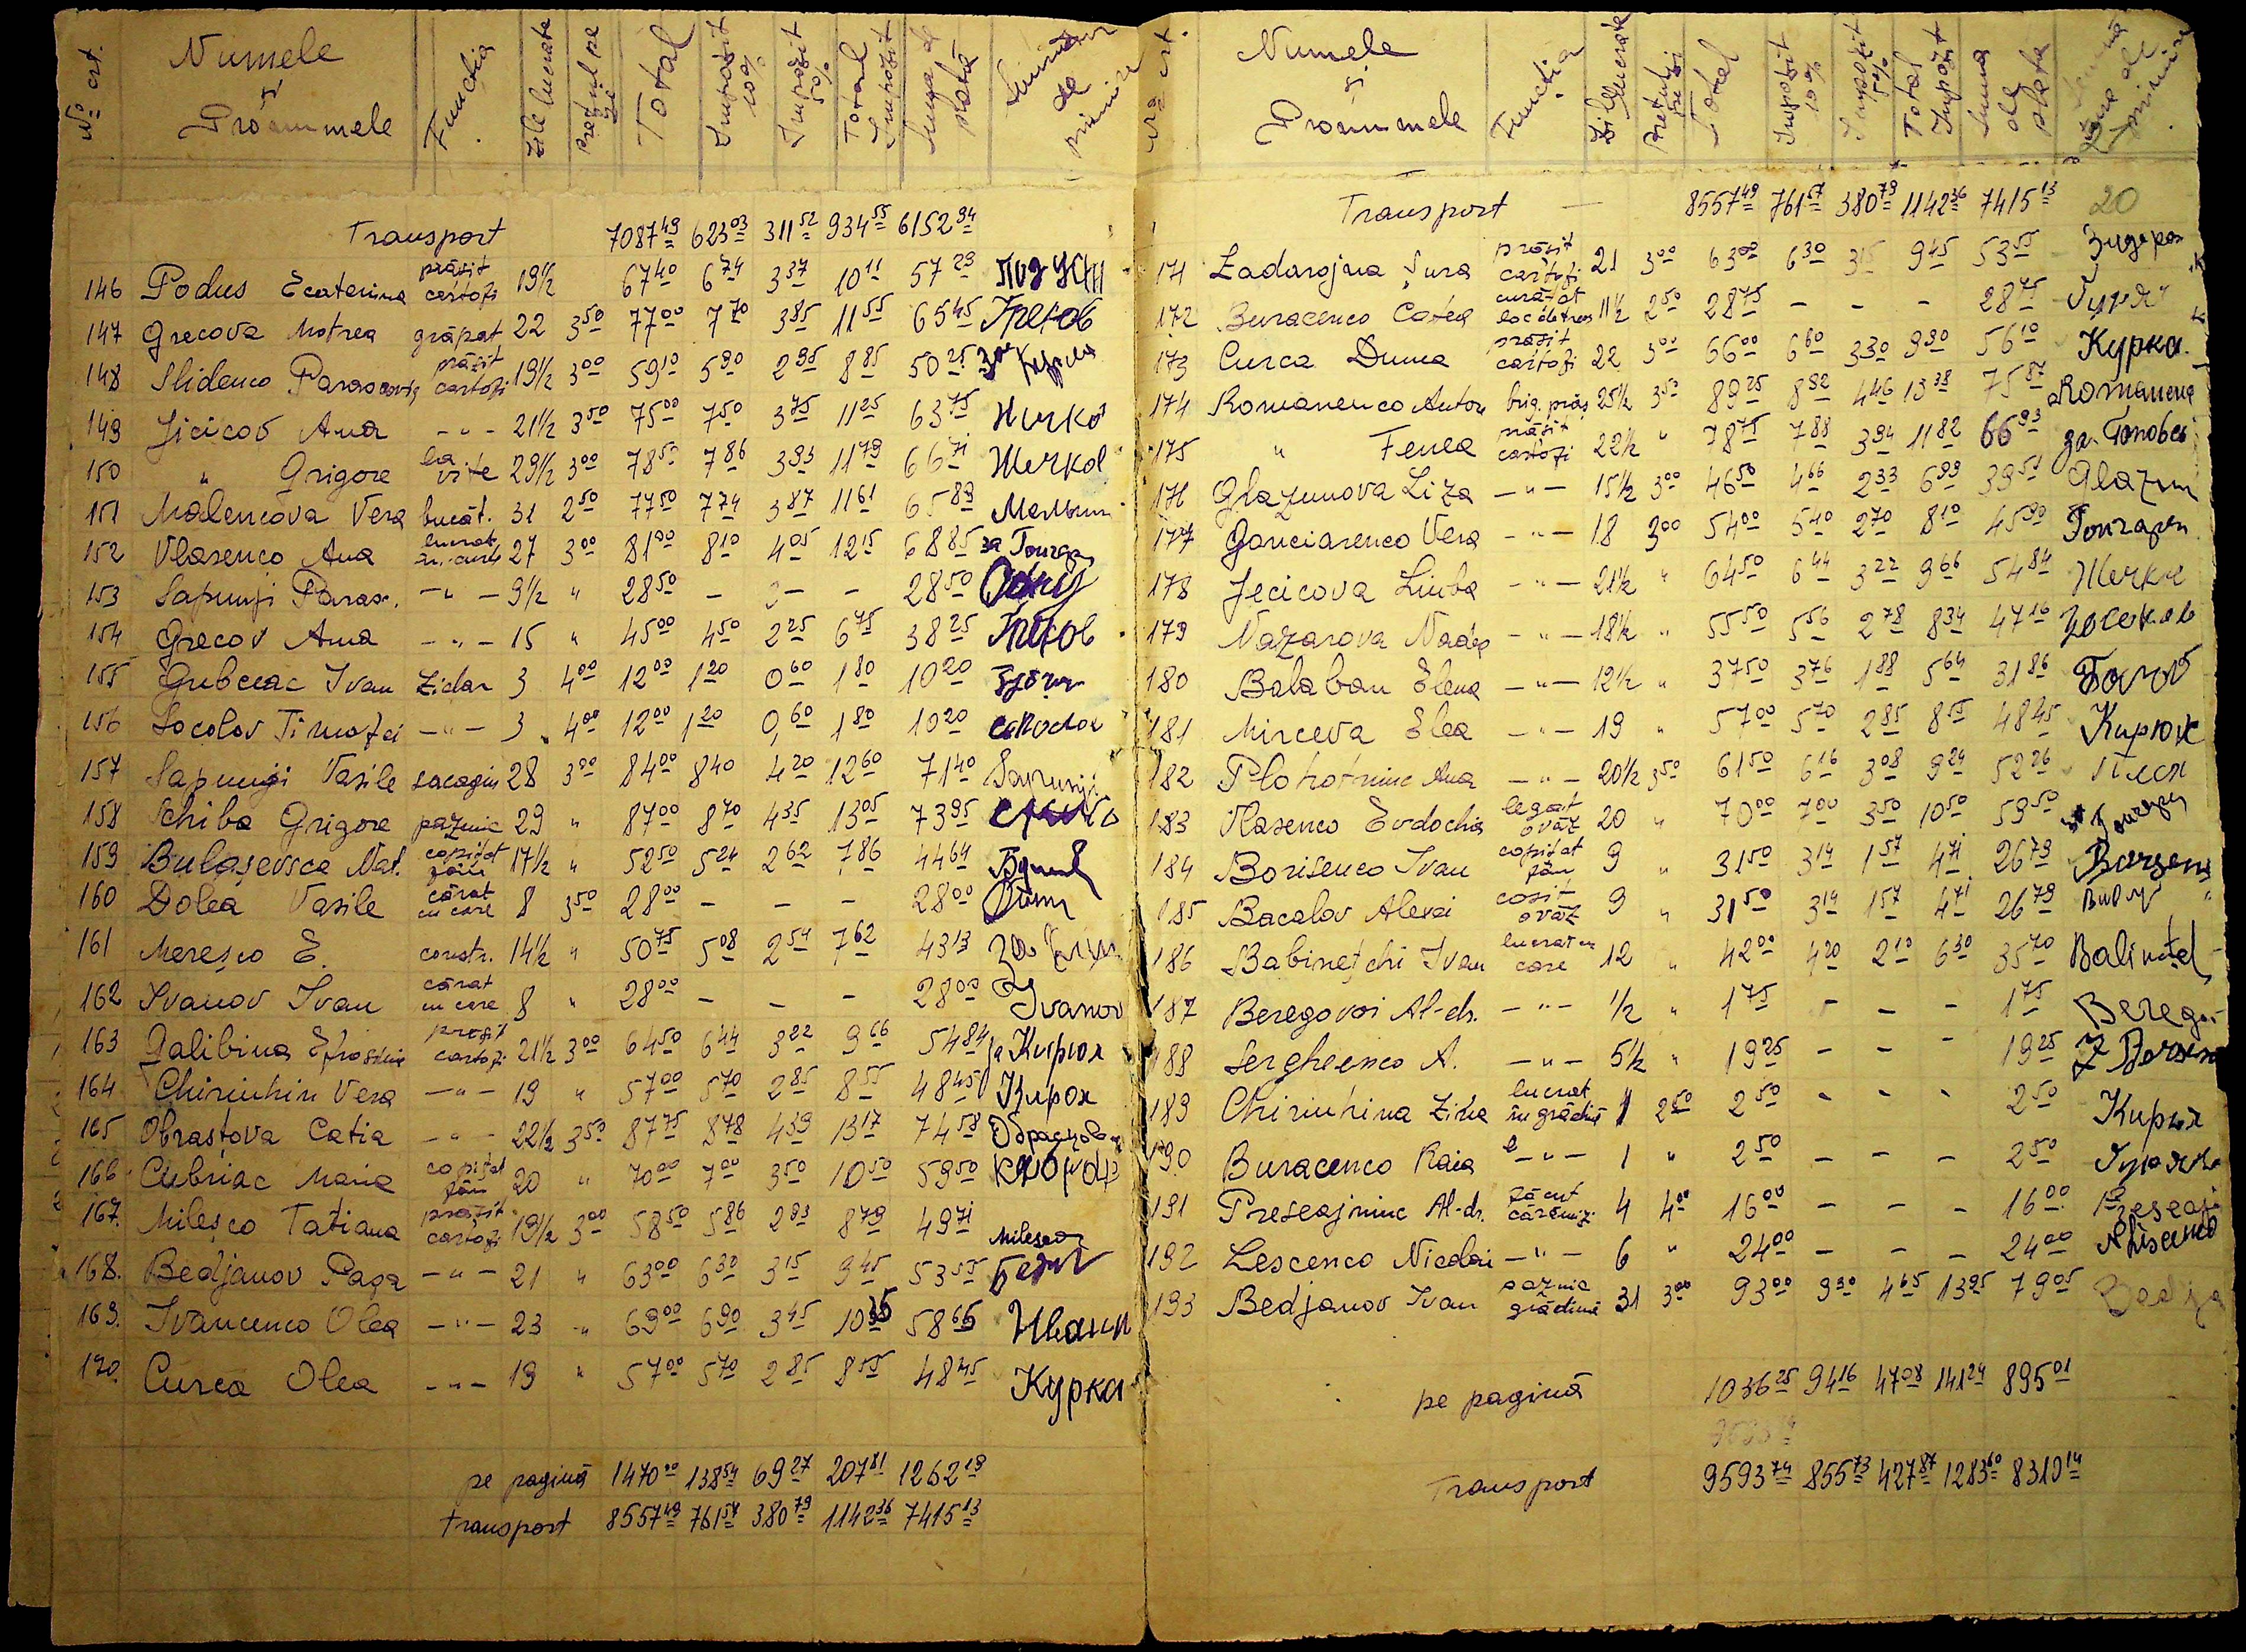 No crt. Numele și Pronumele Funcția Zile lucrate Prețul pe zi Total Impozit 10% Impozit 5% Total Impozit Suma de plată
Transport 7087 49 623 03 311 52 934 55 6152 94
146 Podus Ecaterina prășit cartofi 19½ 67 40 6 74 3 37 10 11 57 29
147 Grecova Motrea grăpat 22 3 50 77 00 7 70 3 85 11 55 65 45 Греков
148 Slidenco Parascovia prășit cartofi 19½ 3 00 59 10 5 90 2 95 8 85 50 25
149 Jicicov Ana -"- 21½ 3 50 75 00 7 50 3 75 11 25 63 75
150 " Grigore la vite 29½ 3 00 78 50 7 86 3 93 11 79 66 71
151 Malencova Vera bucăt. 31 2 50 77 50 7 74 3 87 11 61 65 89
152 Vlasenco Ana lucrat în curte 27 3 00 81 00 8 10 4 05 12 15 68 85
153 Sapunji Parasc. -"- 9½ " 28 50 - - - 28 50
154 Grecov Ana -"- 15 " 45 00 4 50 2 25 6 75 38 25 Греков
155 Gubceac Ivan zidar 3 4 00 12 00 1 20 0 60 1 80 10 20
156 Socolov Timofei -"- 3 4 00 12 00 1 20 0,60 1 80 10 20
157 Sapungi Vasile sacagiu 28 3 00 84 00 8 40 4 20 12 60 71 40 Sapunji
158 Schiba Grigore paznic 29 " 87 00 8 70 4 35 13 05 73 95
159 Bulașevsca Nat. copițat fân 17½ " 52 50 5 24 2 62 7,86 44 64
160 Dolea Vasile cărat cu care 8 3 50 28 00 - - - 28 00
161 Mereșco E. constr. 14½ " 50 75 5 08 2 54 7,62 43 13
162 Ivanov Ivan cărat cu care 8 " 28 00 - - - 28 00 Ivanov
163 Galibina Efrosinia prășit cartofi 21½ 3 00 64 50 6 44 3 22 9 66 54 84 за Кирюх
164 Chiriuhin Vera -"- 19 " 57 00 5 70 2 85 8 55 48 45 Кирюх
165 Obrastova Catia -"- 22½ 3 50 87 75 8 78 4 39 13 17 74 58 Образцова
166 Cubriac Maria copițat fân 20 " 70 00 7 00 3 50 10 50 59 50
167. Mileșco Tatiana prășit cartofi 19½ 3 00 58 50 5 86 2 93 8 79 49 71 Milesco
168. Bedjanov Pașa -"- 21 " 63 00 6 30 3 15 9 45 53 55
169. Ivancenco Olea -"- 23 " 69 00 6 90 3 45 10 35 58 65
170. Curca Olea -"- 19 " 57 00 5 70 2 85 8 55 48 45 Курка
pe pagină 1470 00 138 54 69 27 207 81 1262 19
transport 8557 49 761 57 380 79 1142 36 7415 13
Nro crt. Numele și Pronumele Funcția Zile lucrate Prețul pe zi Total Impozit 10% Impozit 5% Total Impozit Suma de plata
Transport — 8557 49 761 57 380 79 1142 36 7415 13 20
171 Ladarojna Șura prășit cartofi 21 3 00 63 00 6 30 3 15 9 45 53 55
172 Buracenco Catea curățat 11½ 2 50 28 75 - - - 28 75
173 Curca Dunea prășit cartofi 22 3 00 66 00 6 60 3 30 9 90 56 10 Курка
174 Romanenco Anton brig. prăș 25½ 3 50 89 25 8 92 4 46 13 38 75 87
175 " Fenea prășit cartofi 22½ " 78 75 7 88 3 94 11 82 66 93
176 Glazunova Liza -"- 15½ 3 00 46 50 4 66 2 33 6 99 39 51
177 Gonciarenco Vera -"- 18 3 00 54 00 5 40 2 70 8 10 45 90
178 Jecicova Liuba -"- 21½ " 64 50 6 44 3 22 9 66 54 84
179 Nazarova Nadea -"- 18½ " 55 50 5 56 2 78 8 34 47 16
180 Balaban Elena -"- 12½ " 37 50 3 76 1 88 5 64 31 86
181 Mirceva Elea -"- 19 " 57 00 5 70 2 85 8 55 48 45
182 Plohotniuc Ana -"- 20½ 3 50 61 50 6 16 3 08 9 24 52 26
183 Vlasenco Evdochia legat ovăz 20 " 70 00 7 00 3 50 10 50 59 50
184 Borisenco Ivan copițat fân 9 " 31 50 3 14 1 57 4 71 26 79
185 Bacalov Alexei cosit ovăz 9 " 31 50 3 14 1 57 4 71 26 79
186 Babinețchi Ivan lucrat cu care 12 " 42 00 4 20 2 10 6 30 35 70
187 Beregovoi Al-dr. -"- ½ " 1 75 - - - 1 75
188 Sergheenco A. -"- 5½ " 19 25 - - - 19 25
189 Chiriuhina Zina lucrat în grădină 1 2 50 2 50 - - - 2 50
190 Buracenco Raia -"- 1 " 2 50 - - - 2 50
191 Presecajniuc Al-dr. făcut cărămizi 4 4 00 16 00 - - - 16 00
192 Lescenco Nicolai -"- 6 " 24 00 - - - 24 00
193 Bedjanov Ivan paznic grădină 31 3 00 93 00 9 30 4 65 13 95 79 05
pe pagină 1036 25 94 16 47 08 141 24 895 01
Transport 9593 74 855 73 427 87 1283 60 8310 14